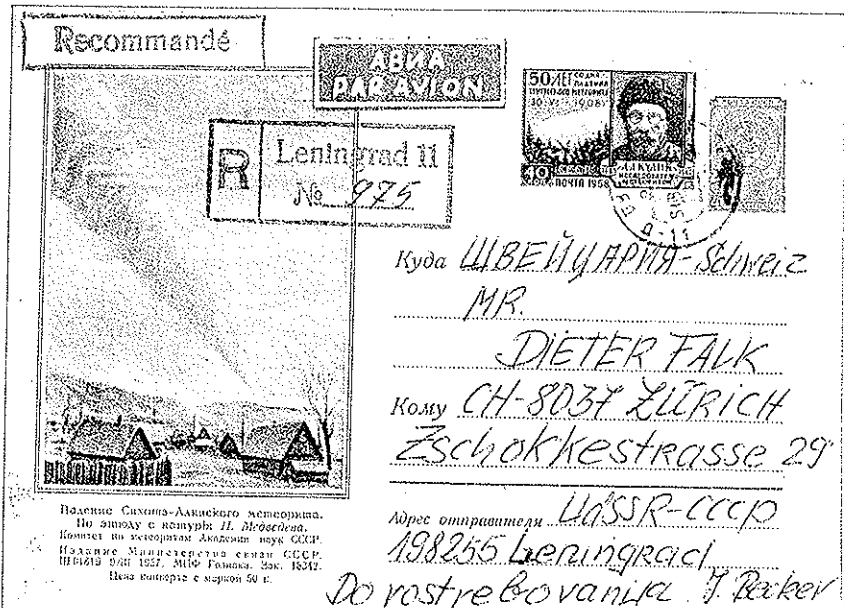 Recommandé
АВИА
PAR AVION
R
Leningrad 11
№ 975
50 ЛЕТ СО ДНЯ
ПАДЕНИЯ
МЕТЕОРИТА
1908
40
ПОЧТА 1958
Л.А.КУЛИК
Куда ШВЕЙЦАРИЯ-Schweiz
MR.
DIETER FALK
Кому CH-8037 ZÜRICH
Zschokkestrasse 29
Адрес отправителя UdSSR-СССР
198255 Leningrad
Do vostrebovanija J. Becker
Падение Сихотэ-Алинского метеорита.
По этюду с натуры П. Медведева.
Комитет по метеоритам Академии наук СССР.
Издание Министерства связи СССР.
1957. МПФ Гознака. Зак. 18342.
Цена конверта с маркой 50 к.